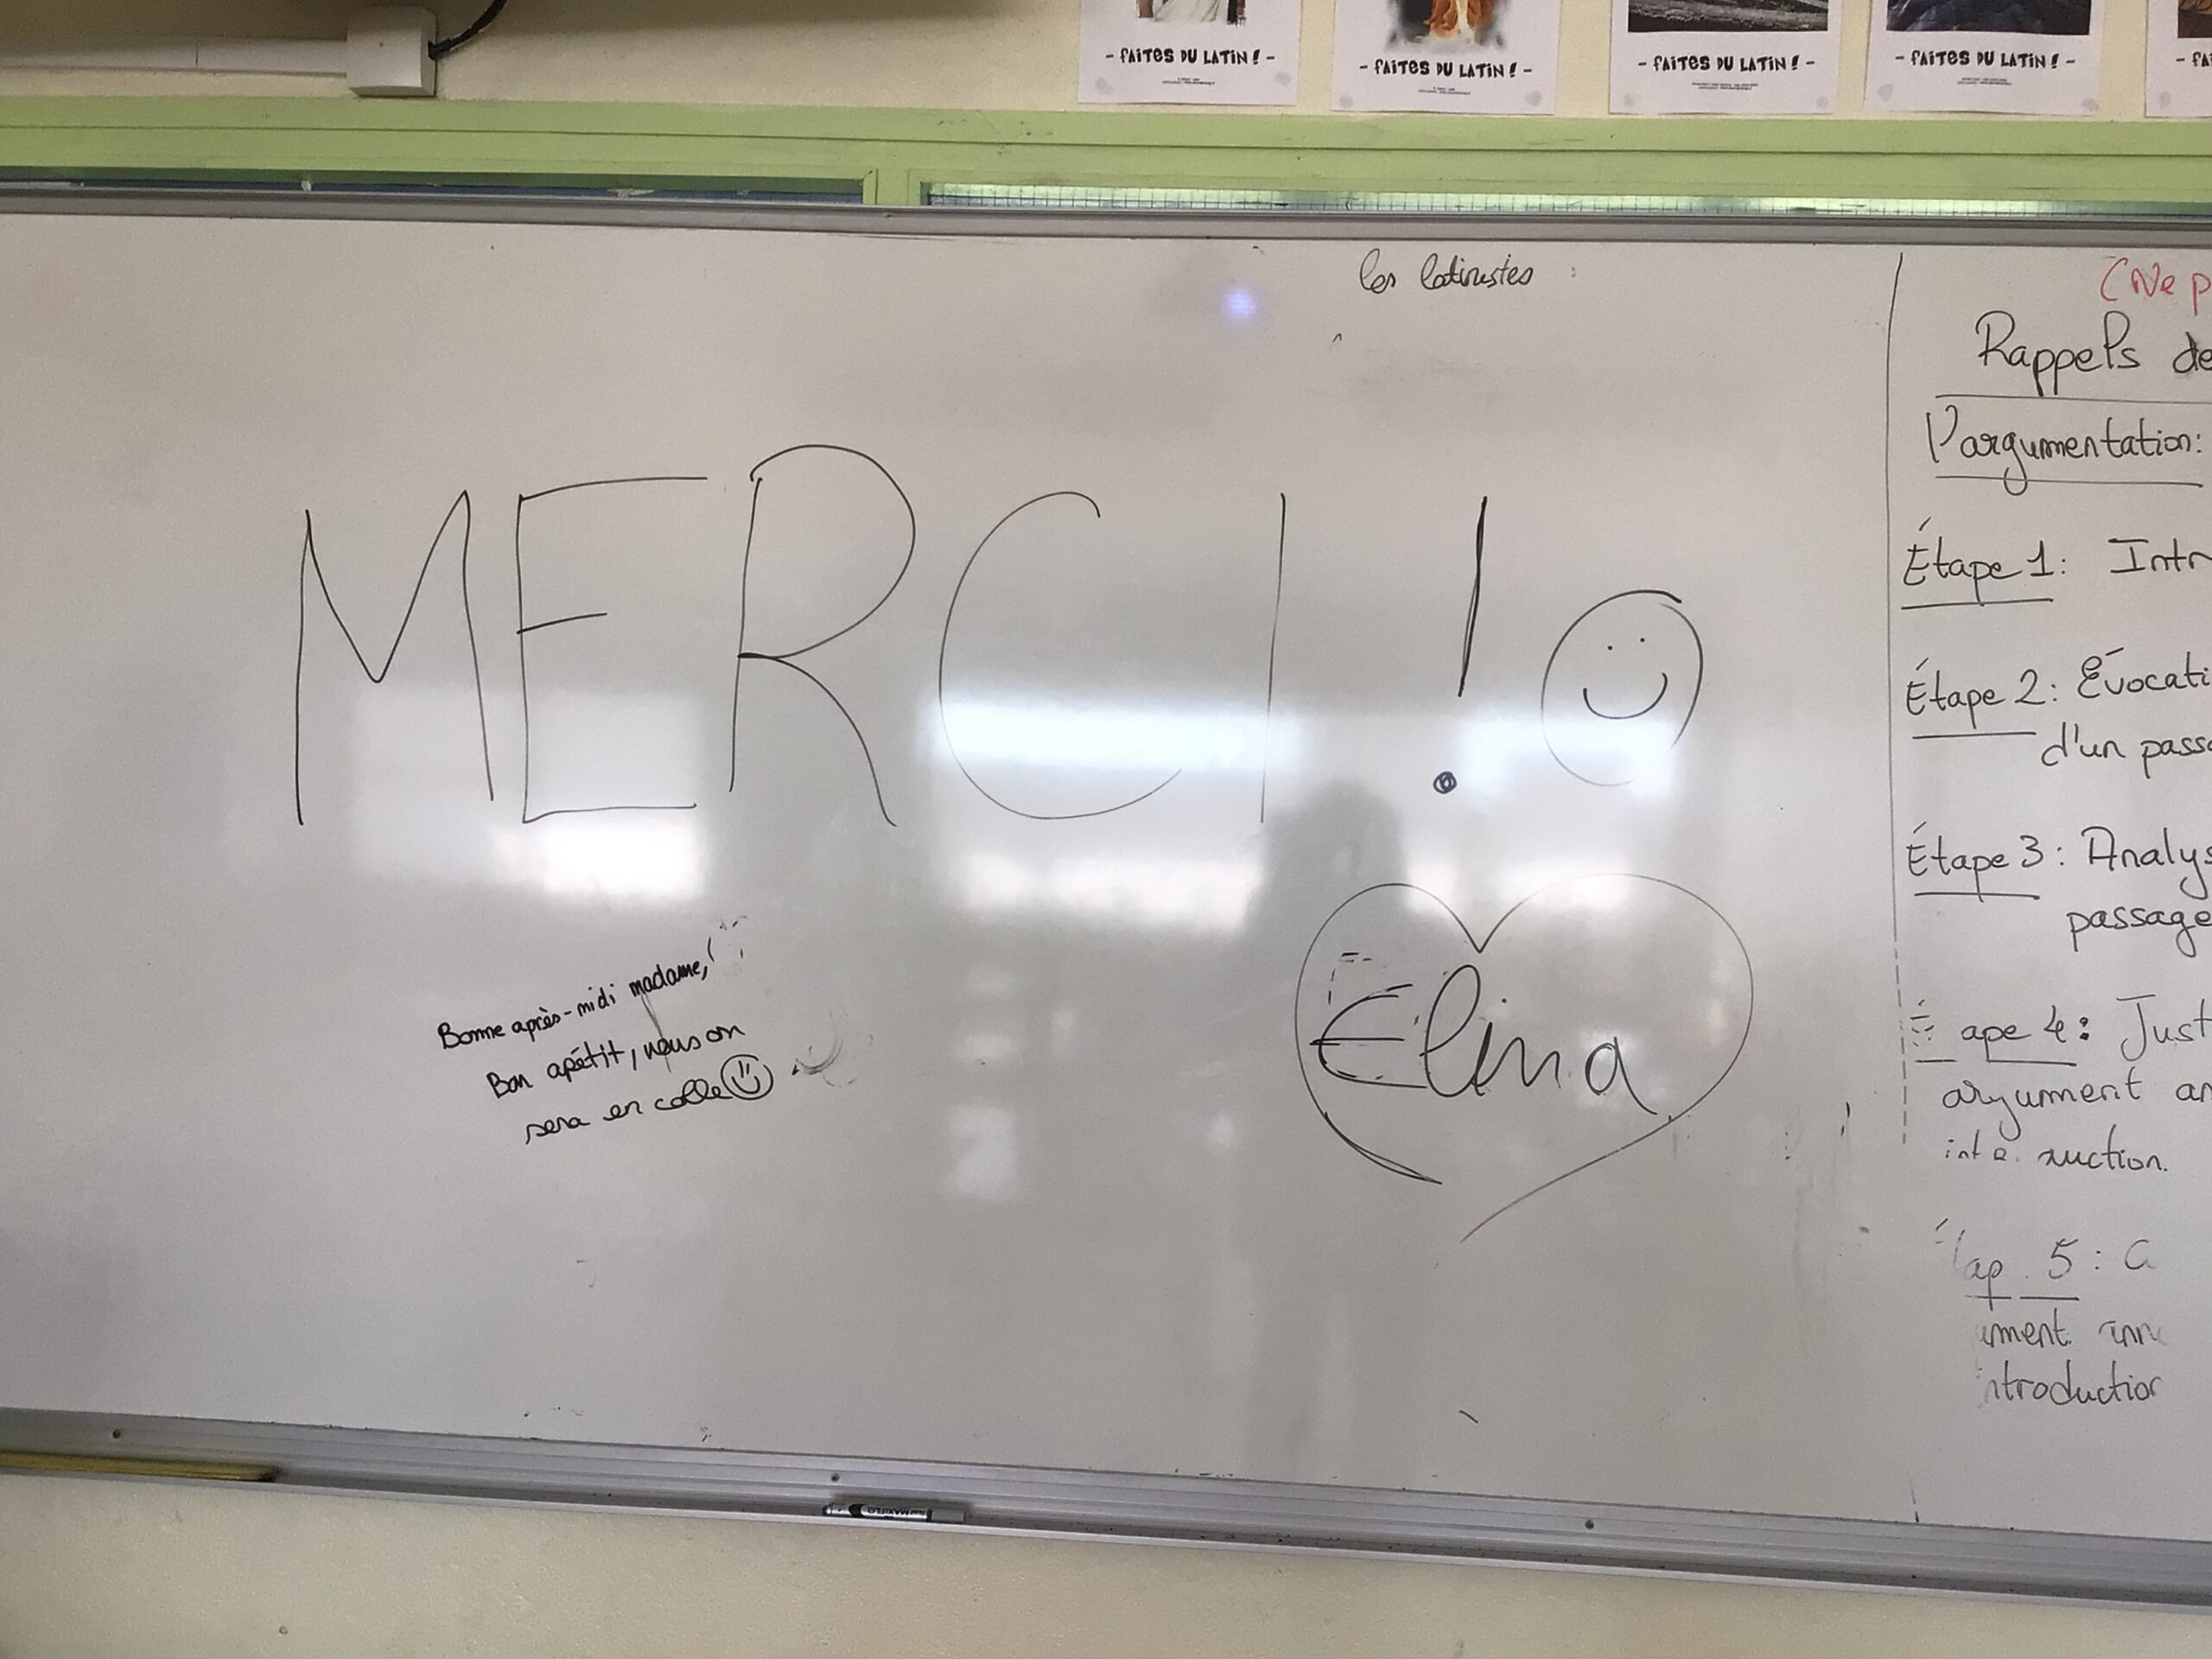 - FAITES DU LATIN ! -
- FAITES DU LATIN ! -
- FAITES DU LATIN ! -
- FAITES DU LATIN ! -
- FA
les latinistes :
MERCI ! 
Bonne après-midi madame,
Bon apétit, nous on
sera en colle
Elina
(Ne p
Rappels de
l'argumentation:
Étape 1: Intr
Étape 2: Évocati
d'un passa
Étape 3: Analys
passage
ape 4: Just
argument an
uction.
ap 5: C
ument
ntroduction